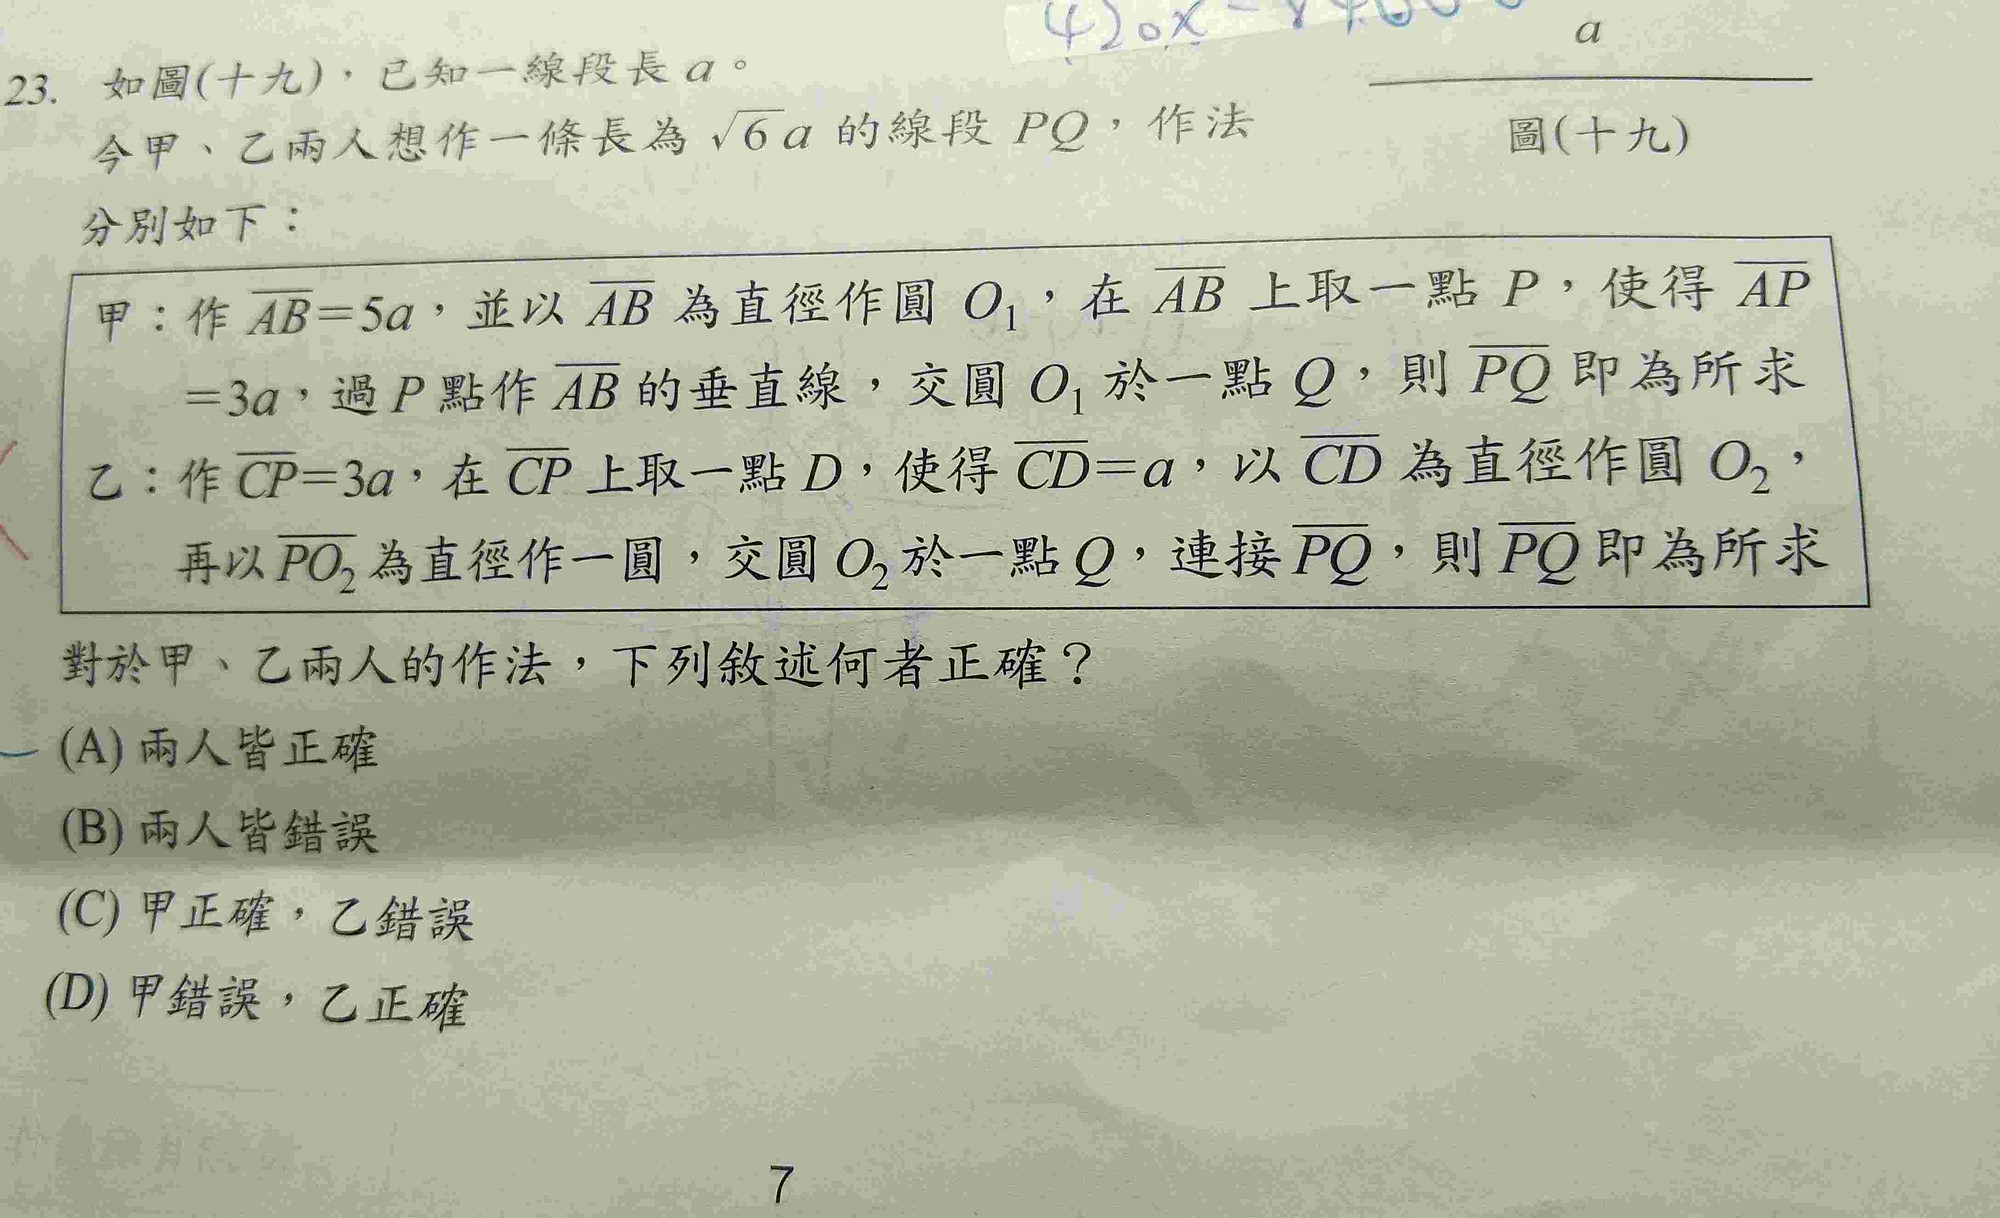 a
23. 如圖(十九)，已知一線段長 a。
今甲、乙兩人想作一條長為 √6a 的線段 PQ，作法
圖(十九)
分別如下：
甲：作 AB=5a，並以 AB 為直徑作圓 O₁，在 AB 上取一點 P，使得 AP
=3a，過 P 點作 AB 的垂直線，交圓 O₁ 於一點 Q，則 PQ 即為所求
乙：作 CP=3a，在 CP 上取一點 D，使得 CD=a，以 CD 為直徑作圓 O₂，
再以 PO₂ 為直徑作一圓，交圓 O₂ 於一點 Q，連接 PQ，則 PQ 即為所求
對於甲、乙兩人的作法，下列敘述何者正確？
(A) 兩人皆正確
(B) 兩人皆錯誤
(C) 甲正確，乙錯誤
(D) 甲錯誤，乙正確
7